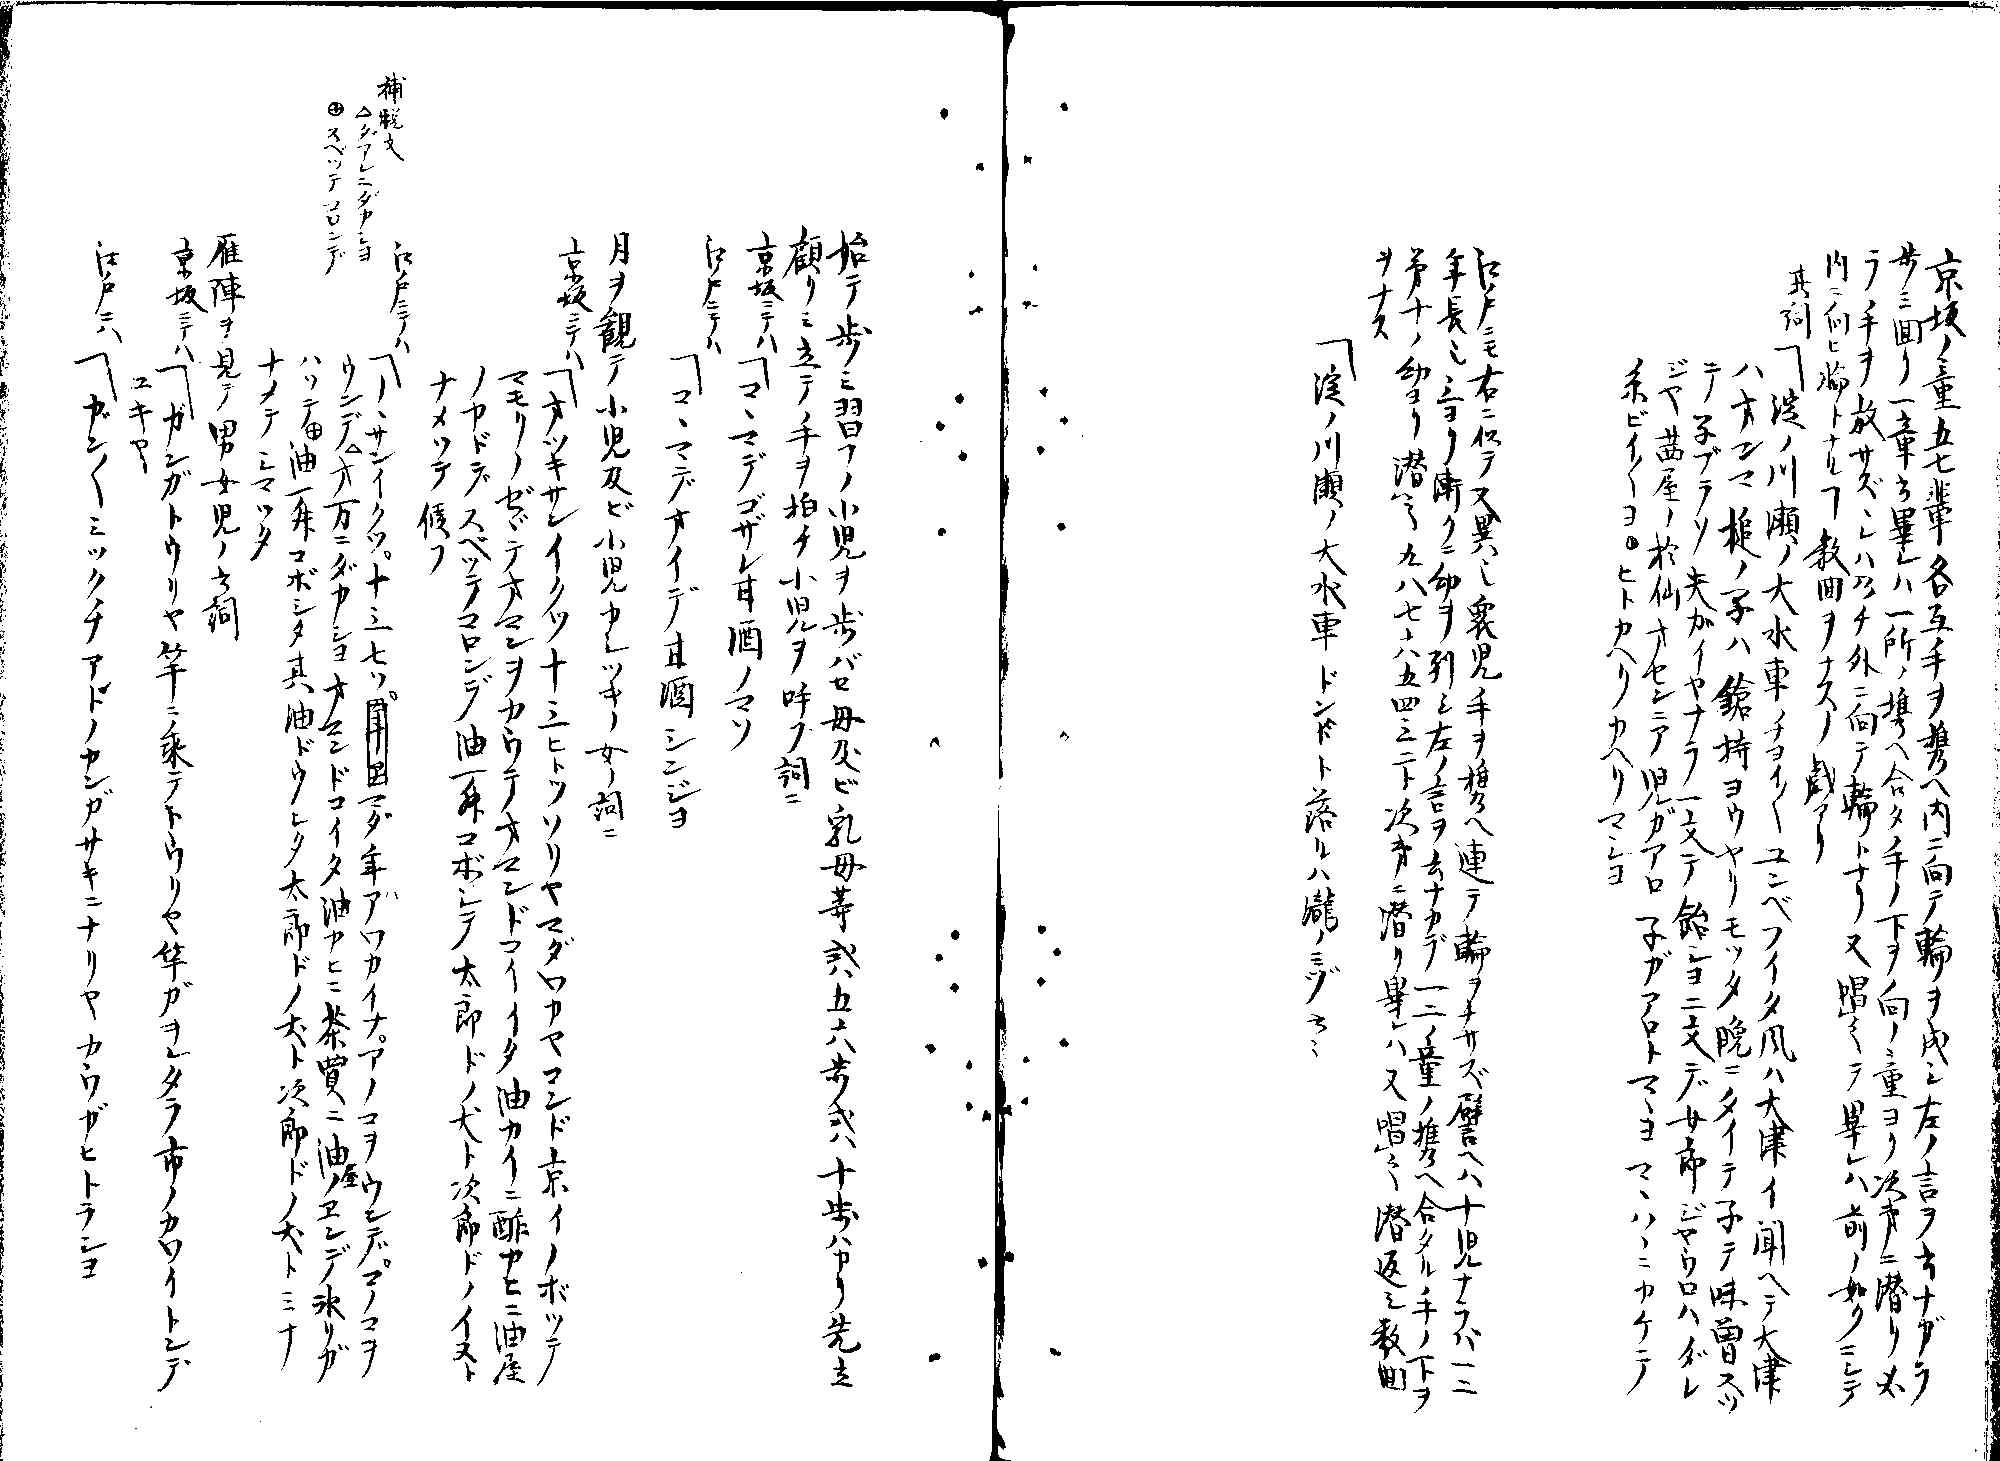 京坂ノ童五七輩各互手ヲ携ヘ内ニ向テ輪ヲ成シ左ノ言ヲ云ナガラ
歩ミ回リ一章ヲ畢レハ一所ノ携ヘ合タル手ノ下ヲ向ノ童ヨリ次第ニ潜リ必
ラ手ヲ放サズシレハ乃チ外ニ向テ輪トナリ又唱ヘテ畢レハ前ノ如クニシテ
内ニ向ヒ輪トナルコト数回ヲナスノ戯アリ
其詞
「淀ノ川瀬ノ大水車チヨイ〱ユンベフイタ風ハ大津イ聞ヘテ大津
ハオンマ槌ノ子ハ鎗持ヨウヤリモツタ晩ニタイテ子テ味曽スツ
テ子ブラソ夫ガイヤナラ一文テ飴シヨ二文デ女郎ジヤウロハダレ
ジヤ茜屋ノ於仙オセンニア児ガアロ子ガアロトマヽヨマヽハヽニカケテ
糸ビイ〱ヨヒトカヘリカヘリマシヨ
江戸ニモ右ニ似テ又異ハシ衆児手ヲ携ヘ連テ輪ヲナサズ譬ヘハ十児ナラバ一ニ
年長シ三ヨリ漸クニ幼ヲ列シ左ノ言ヲ云ナカデ一二ノ童ノ携ヘ合タル手ノ下ヲ
第十ノ幼ヨリ潜ヘ九八七六五四三ニト次第ニ潜リ畢レハ又唱ヘ潜返シ数回
ヲナス
「淀ノ川瀬ノ大水車ドンドト落ルハ瀧ノミヅ云々
始テ歩ミ習フノ小児ヲ歩バセ母及ビ乳母等或ハ五六歩或ハ十歩ハカリ先立
顧リミ立テノ手ヲ拍チ小児ヲ呼ブ詞ニ
京坂ニテハ「マヽマデゴザレ甘酒ノマソ
江戸ニテハ
「コヽマデオイデ甘酒シンジヨ
月ヲ観テ小児及ビ小児カシツキノ女ノ詞ニ
京坂ニテハ「オツキサンイクツ十三ヒトツソリヤマダワカヤマンド京イノボツテ
マモリノゼゼテオマンヲカウテオマンドコイイタ油カイニ酢カヒニ油屋
ノカドデスベツテコロンデ油一升コボシテ太郎ドノ犬ト次郎ドノイヌト
ナメツテ候フ
江戸ニテハ
「ノヽサンイクツ。十三七ツ。マダ年ハワカイナ。アノコヲウンデ。コノコヲ
ウンデ△オ万ニダカシヨオマンドコイタ油カヒニ茶買ニ油屋ノヱンデ氷リガ
ハツテ⊕油一升コボシタ其油ドウシタ太郎ドノ犬ト次郎ドノ犬トミナ
ナメテシマツタ
補脱文
△ダアレニダカシヨ
⊕スベツテコロンデ
雁陣ヲ見テ男女児ノ云詞
京坂ニテハ「ガンガトウリヤ竿ニ乗テトウリヤ竿ガヲレタラ市ノカワイトンデ
ユキヤヽ
江戸ニハ
「ガン〱ミツクチアトノカンガサキニナリヤカウガヒトラシヨ